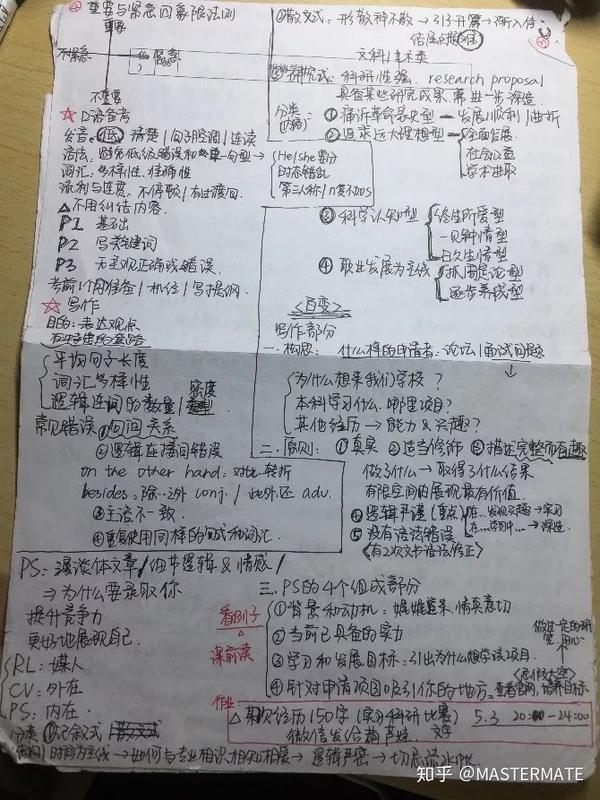 ④ 重要与紧急四象限法则
重要
不紧急
紧急
不重要
☆ 口语备考
发音:低 清楚/句子腔调/连读
语法:避免低级错误和单一句型→
He/she要分
时态错乱
第三人称/n复不加s
词汇:多样性、准确性
流利与连贯、不停歇/有过渡词
△ 不用纠结内容
P1 基础
P2 写关键词
P3 无主观正确或错误
考前1个月准备/抓住/写提纲
☆ 写作
目的:表达观点
平均句子长度
词汇多样性
逻辑连词的数量/密度
常见错误 ①
②逻辑连接词错误
on the other hand:对比、转折
besides:除…之外 conj./此外还 adv.
③主语不一致
④重复使用同样的句式和词汇
PS:漫谈体文章/细节逻辑&情感/
⇒为什么要录取你
提升竞争力
更好地展现自己
RL:媒人
CV:外在
PS:内在
分类 ①记叙式
时间为主线→如何与专业相识相知相展→逻辑严密→切忌流水账
②散文式:形散神不散→引子开篇→渐入佳境
文科/艺术类
③研究式:科研性强、research proposal
具备某些研究成果、需进一步深造
分类(内容)
①
发展 顺利/曲折
②追求远大理想型
全面发展
社会公益
学术进取
③科学认知型
给生所爱型
一见钟情型
日久生情型
④职业发展为主线
逐步养成型
<百变>
写作部分
一、构思: 什么样的申请者、论坛/面试问题
为什么想来我们学校?
本科学习什么、哪里项目?
其他经历→能力&兴趣?
二、原则:①真实 ②适当修饰 ③描述完整而有趣
做了什么→取得了什么结果
有限空间的展现最有价值
④逻辑严谨(重点)
在…发现兴趣→学习
⑤没有语法错误
<有2次文书语法修正>
三、PS的4个组成部分
看例子
课前读
①背景和动机:娓娓道来、情真意切
②当前已具备的实力
③学习和发展目标:引出为什么想学该项目
④针对申请项目吸引你的地方、查看官网、培养目标
作业
经历150字(实习科研比赛) 5.3 20:00-24:00
知乎 @MASTERMATE